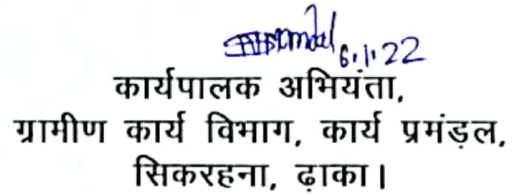 6.1.22
कार्यपालक अभियंता,
ग्रामीण कार्य विभाग, कार्य प्रमंड़ल,
सिकरहना, ढ़ाका।